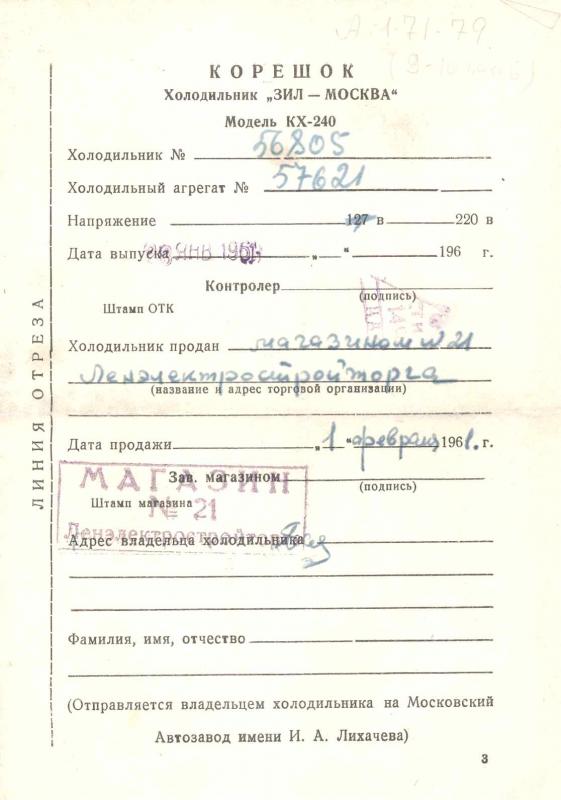 А-1-71-79
КОРЕШОК
Холодильник „ЗИЛ — МОСКВА“
Модель КХ-240
Холодильник № 56805
Холодильный агрегат № 57621
Напряжение 127 в 220 в
Дата выпуска ЯНВ 1961 „ “ 196 г.
Контролер
(подпись)
Штамп ОТК
Холодильник продан магазином № 21
Ленэлектростройторга
(название и адрес торговой организации)
Дата продажи „1“ февраля 1961. г.
МАГАЗИН
Зав. магазином
(подпись)
№ 21
Штамп магазина
Ленэлектростройторга
Адрес владельца холодильника
Фамилия, имя, отчество
(Отправляется владельцем холодильника на Московский
Автозавод имени И. А. Лихачева)
3
ЛИНИЯ ОТРЕЗА